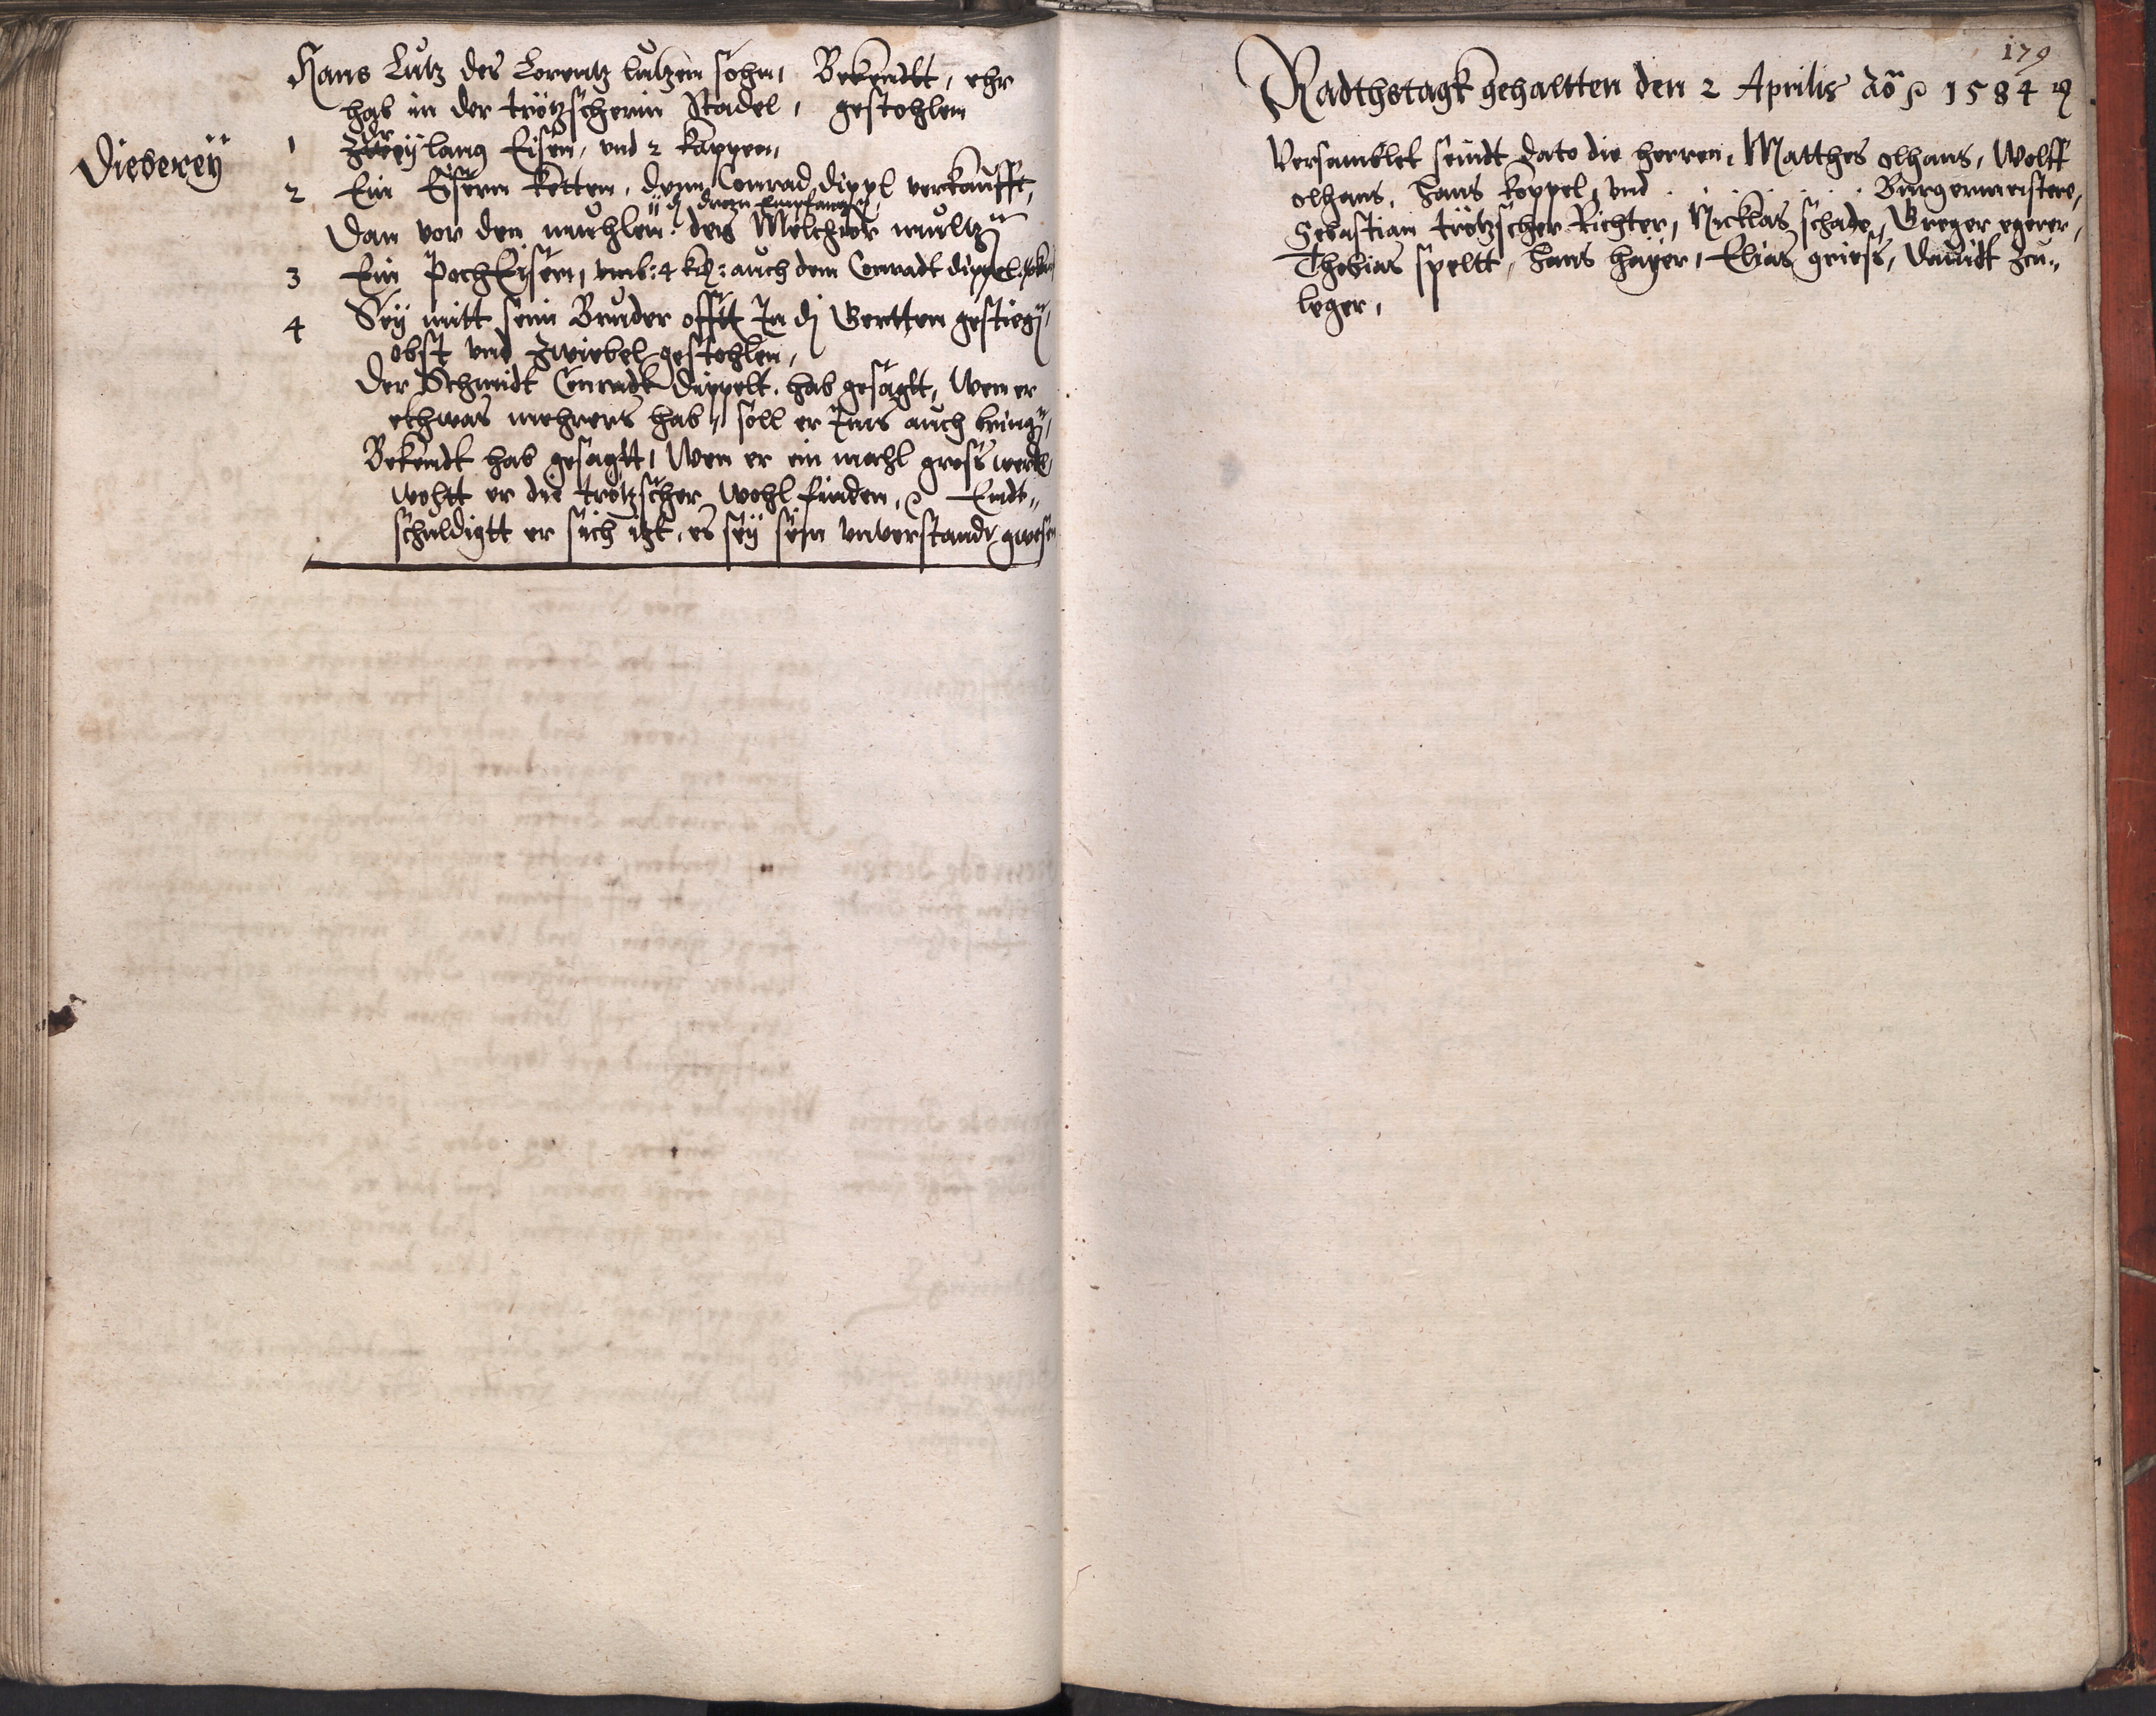 Hans Lutz des Lorentz lutzen sohn, Bekendtt, ehr
hab in der trötzscherin Stadel, gestohlen
Dieberey
1 Drey lang Eisen, vnd 2 kappen,
2 Ein Eysern ketten, denn Conrad dippl verkaufft,
Dan vor den muehlen des Melchior
3 Ein PochEysern, vmb: 4 kr: auch dem Conradt dippel
4 Sey mitt sein Bruder offtt In di Gertten gestieg,
obst vnd Zwiebel gestohlen,
Der Schmidt Conradt dippelt hab gesagtt, Wen er
ethwas mehrers hab, soll er Ims auch bring,
Bekendt hab gesagtt, Wen er ein mahl gross werdt,
woltt er die trötzscher wohl finden, Endt„
schuldigtt er sich itzt, es sey sein vnverstandt gwesen
179
Radthstagk gehaltten den 2 Aprilis Ao 1584
Versamblet seindt dato die herren, Matthes olhans, Wolff
olhans, Hans koppel, vnd . . . . . Burgermeistere,
Sebastian trötzscher Richter, Nicklas schade, Greger egerer,
Thobias speltt, Hans hayer, Elias griess, Dauidt Zeu„
leger,